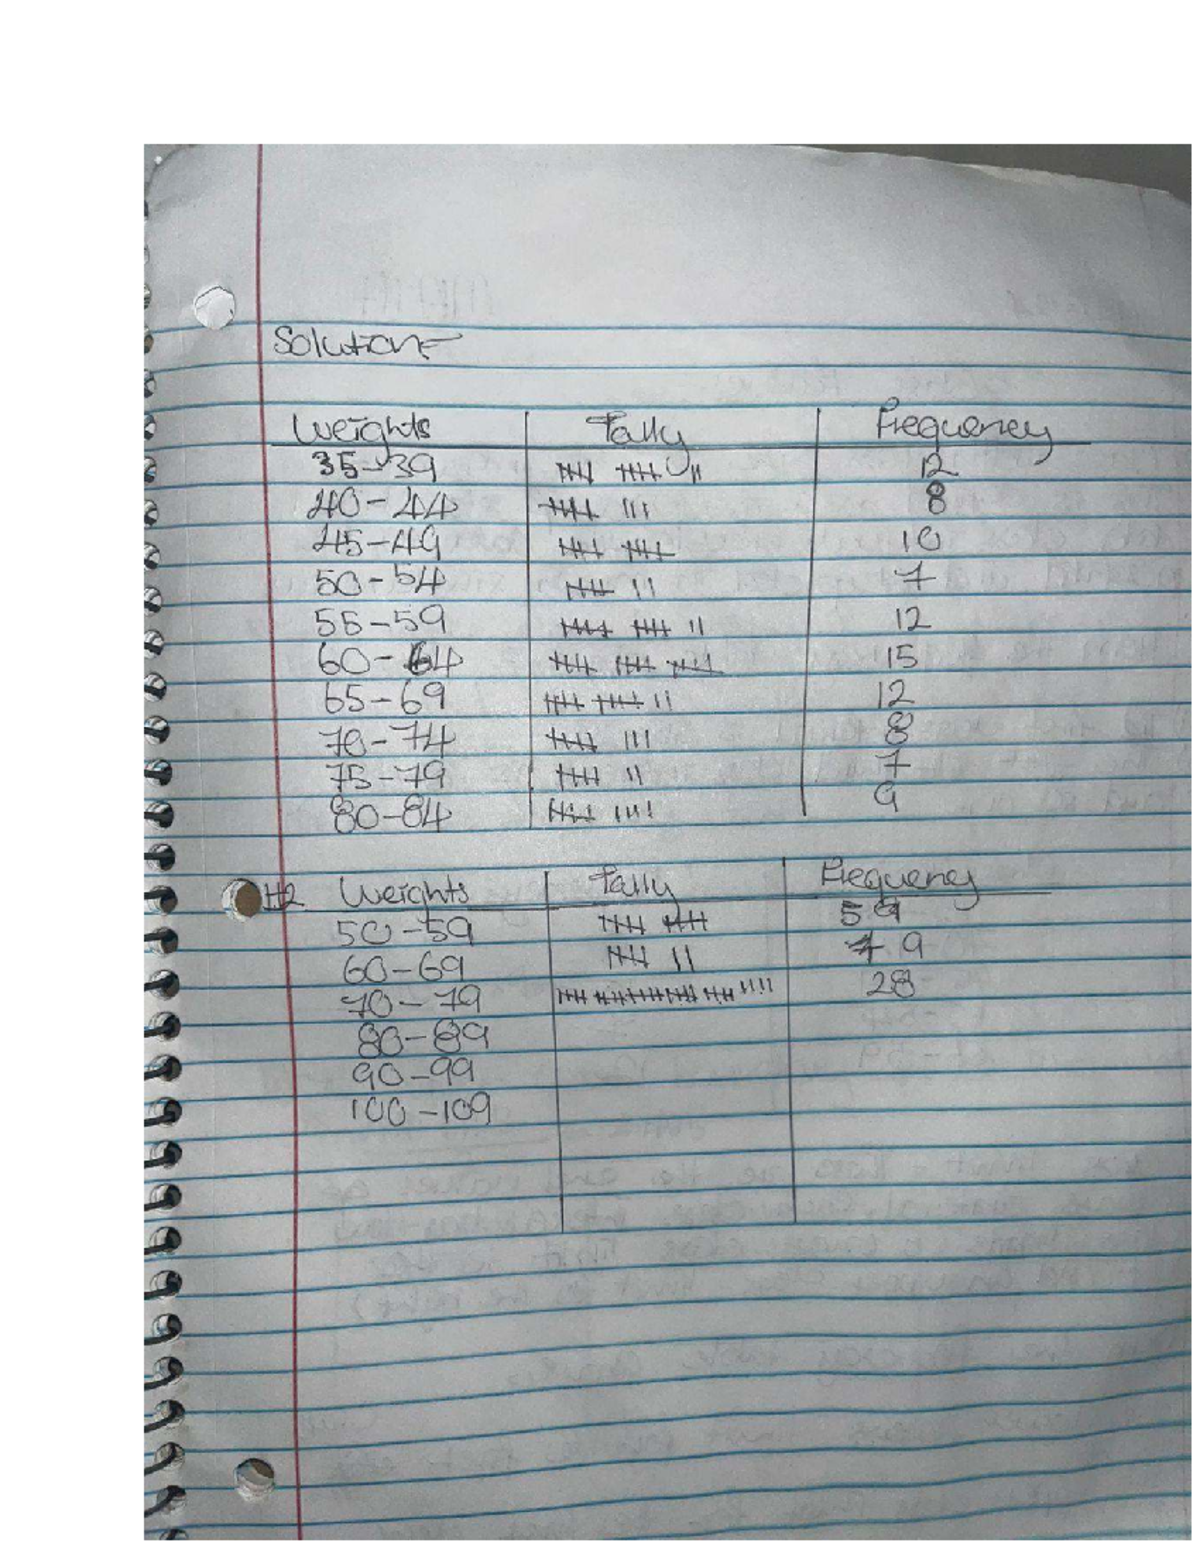 Solution
Weights Tally Frequency
35-39 𝍸 𝍸 || 12
40-44 𝍸 ||| 8
45-49 𝍸 𝍸 10
50-54 𝍸 || 7
55-59 𝍸 𝍸 || 12
60-64 𝍸 𝍸 𝍸 15
65-69 𝍸 𝍸 || 12
70-74 𝍸 ||| 8
75-79 𝍸 || 7
80-84 𝍸 |||| 9
#2 Weights Tally Frequency
50-59 𝍸 𝍸 5 9
60-69 𝍸 || 9
70-79 28
80-89
90-99
100-109